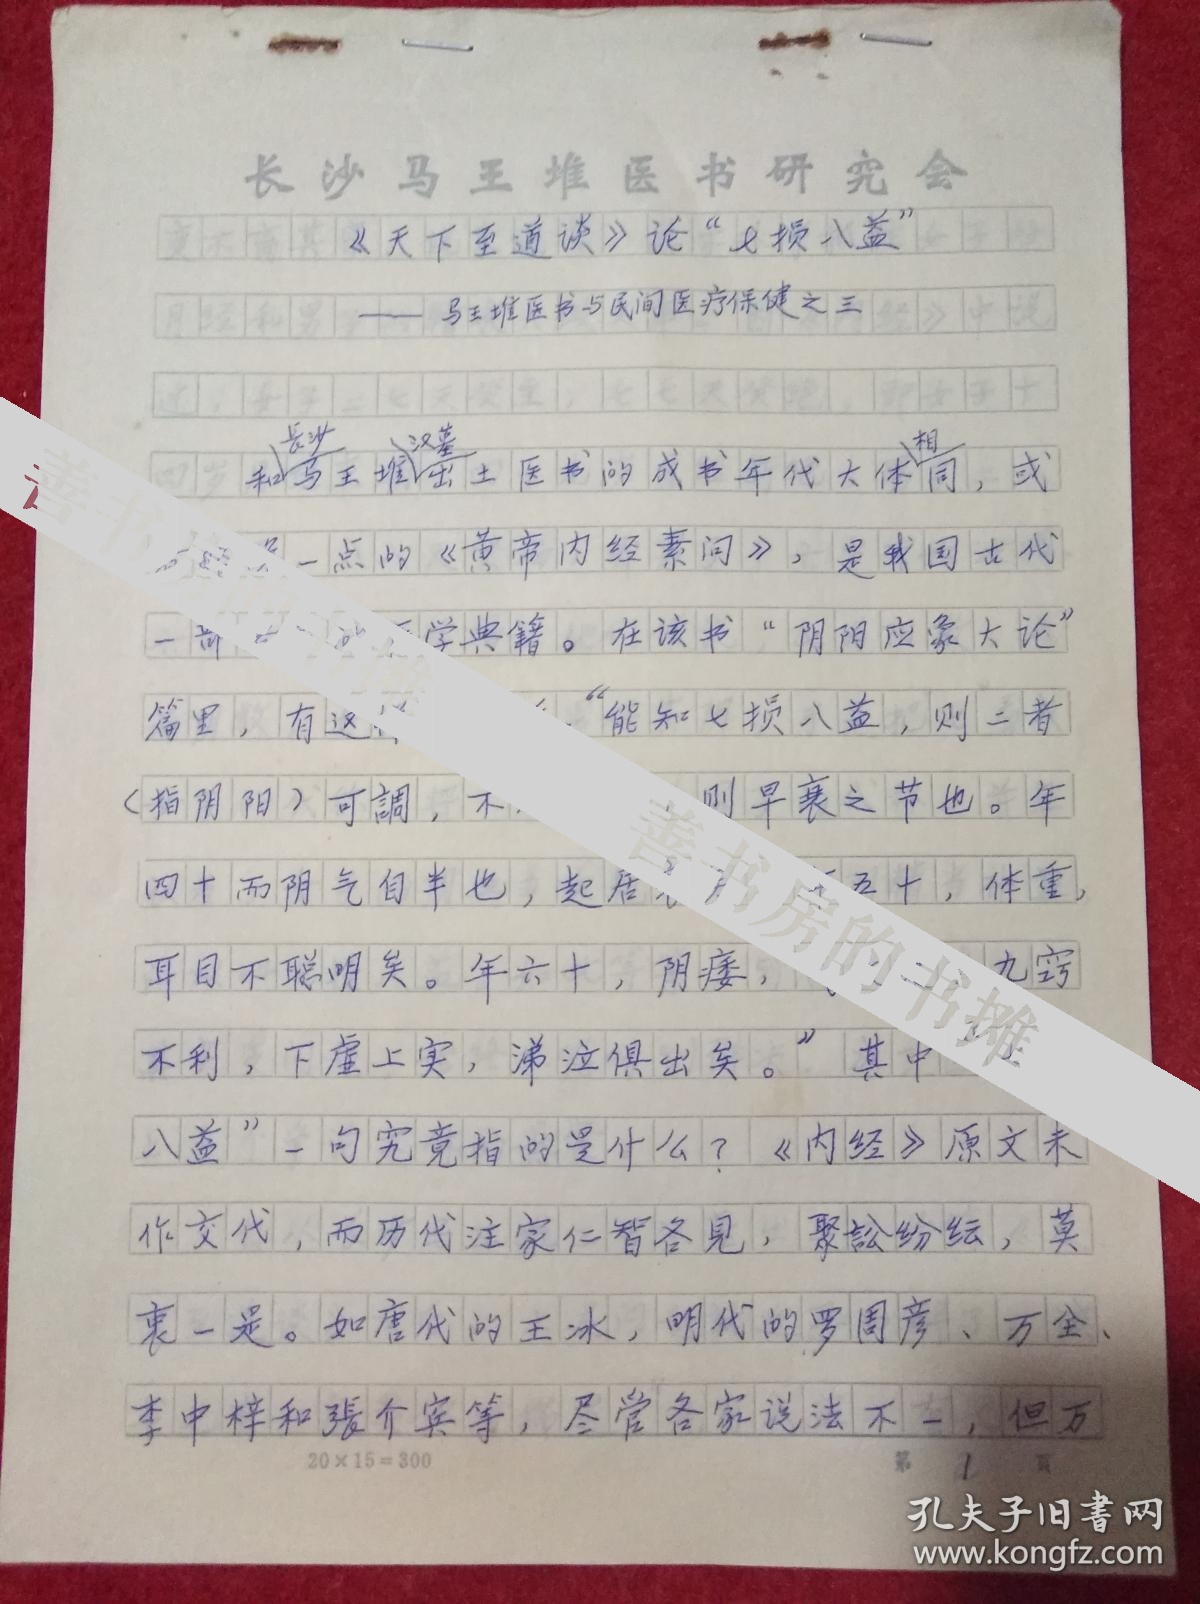 长沙马王堆医书研究会
《天下至道谈》论“七损八益”
——马王堆医书与民间医疗保健之三
长沙 汉墓 相
和马王堆出土医书的成书年代大体同，或
一点的《黄帝内经素问》，是我国古代
一部 学典籍。在该书“阴阳应象大论”
篇里，有这 “能知七损八益，则二者
（指阴阳）可調，不 则早衰之节也。年
四十而阴气自半也，起居 五十，体重，
耳目不聪明矣。年六十，阴痿， 九窍
不利，下虚上实，涕泣俱出矣。”其中
八益”一句究竟指的是什么？《内经》原文未
作交代，而历代注家仁智各见，聚訟纷纭，莫
衷一是。如唐代的王冰，明代的罗周彦、万全、
李中梓和張介宾等，尽管各家说法不一，但万
20×15=300
第 1 頁
善书房的书摊
孔夫子旧书网
www.kongfz.com